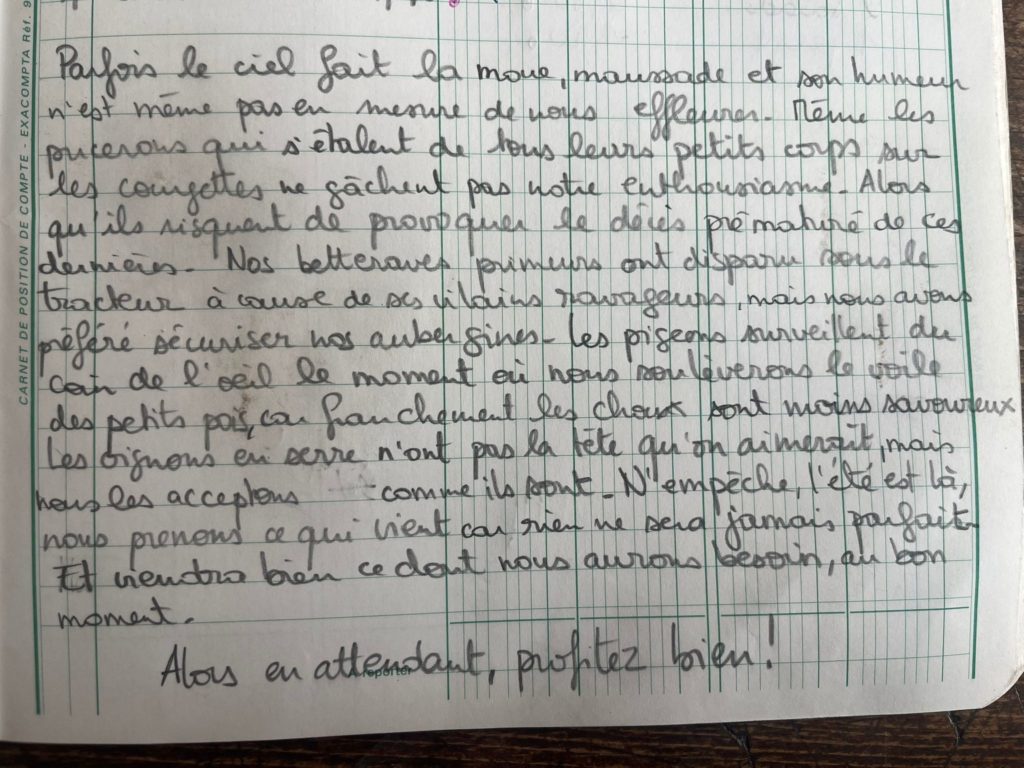 CARNET DE POSITION DE COMPTE - EXACOMPTA Réf. 9
Parfois le ciel fait la moue, maussade et son humeur
n'est même pas en mesure de nous effleurer. Même les
pucerons qui s'étalent de tous leurs petits corps sur
les courgettes ne gâchent pas notre enthousiasme. Alors
qu'ils risquent de provoquer le décès prématuré de ces
dernières. Nos betteraves primeurs ont disparu sous le
tracteur à cause de ses vilains ravageurs, mais nous avons
préféré sécuriser nos aubergines. Les pigeons surveillent du
coin de l'oeil le moment où nous soulèverons le voile
des petits pois, car franchement les choux sont moins savoureux
Les oignons en serre n'ont pas la tête qu'on aimerait, mais
nous les acceptons comme ils sont. N'empêche, l'été est là,
nous prenons ce qui vient car rien ne sera jamais parfait
Et viendra bien ce dont nous aurons besoin, au bon
moment.
Alors en attendant, profitez bien!
reporter